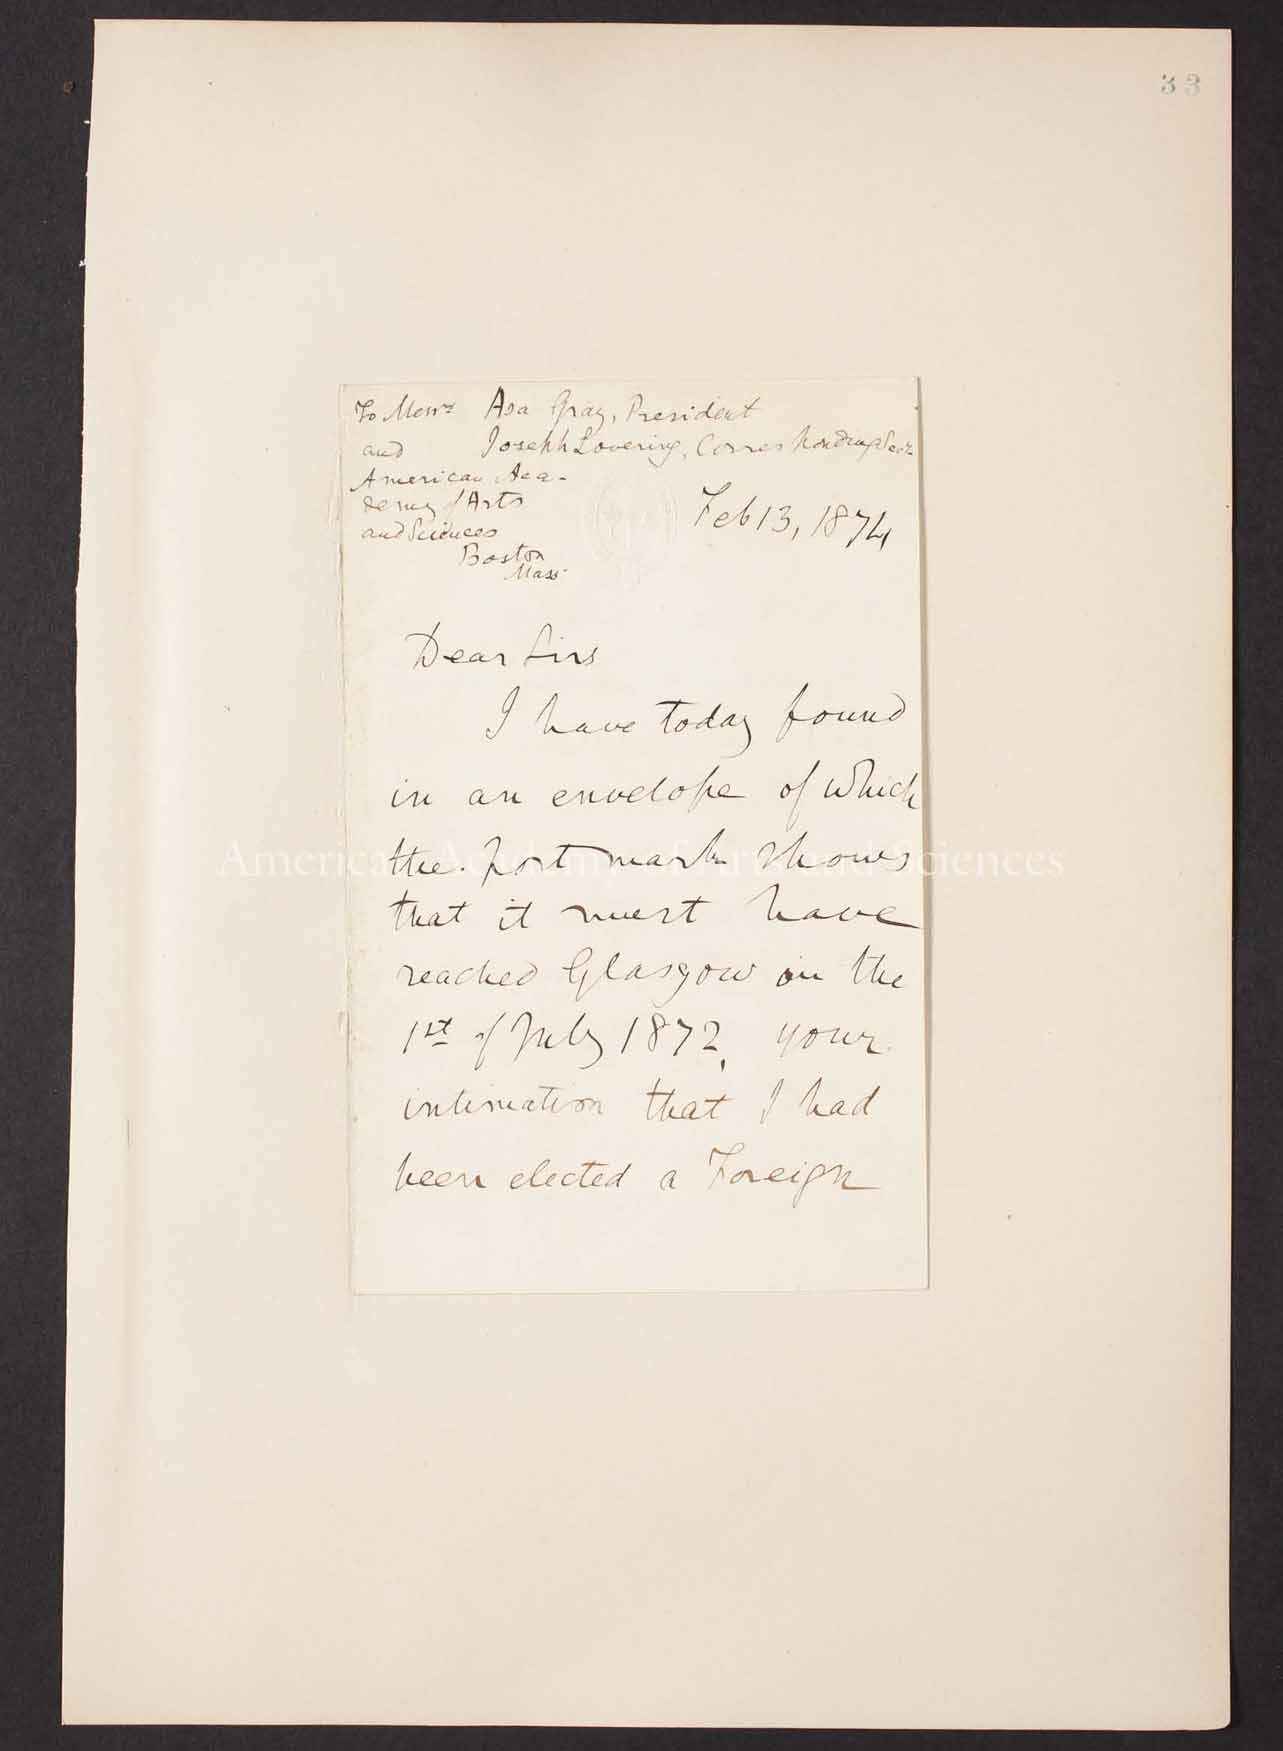 33
To Messrs Asa Gray, President
and Joseph Lovering, Corresponding Secr.
American Aca-
demy of Arts
and Sciences
Boston
Mass.
Feb 13, 1874
Dear Sirs
I have today found
in an envelope of which
the post mark shows
that it must have
reached Glasgow on the
1st of July 1872, your
intimation that I had
been elected a Foreign
American Academy of Arts and Sciences